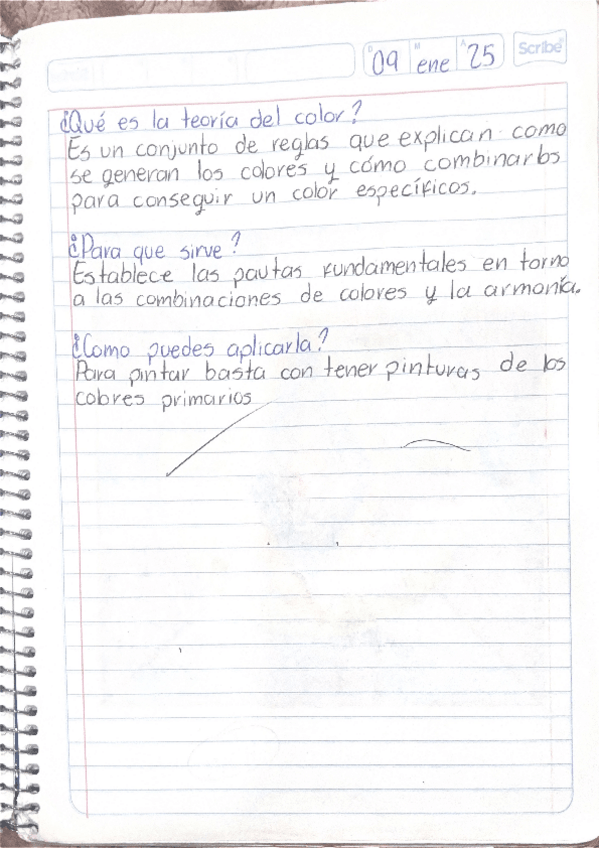 09 ene 25 Scribe
¿Qué es la teoría del color?
Es un conjunto de reglas que explican como
se generan los colores y cómo combinarlos
para conseguir un color específicos.
¿Para que sirve?
Establece las pautas fundamentales en torno
a las combinaciones de colores y la armonía.
¿Como puedes aplicarla?
Para pintar basta con tener pinturas de los
colores primarios